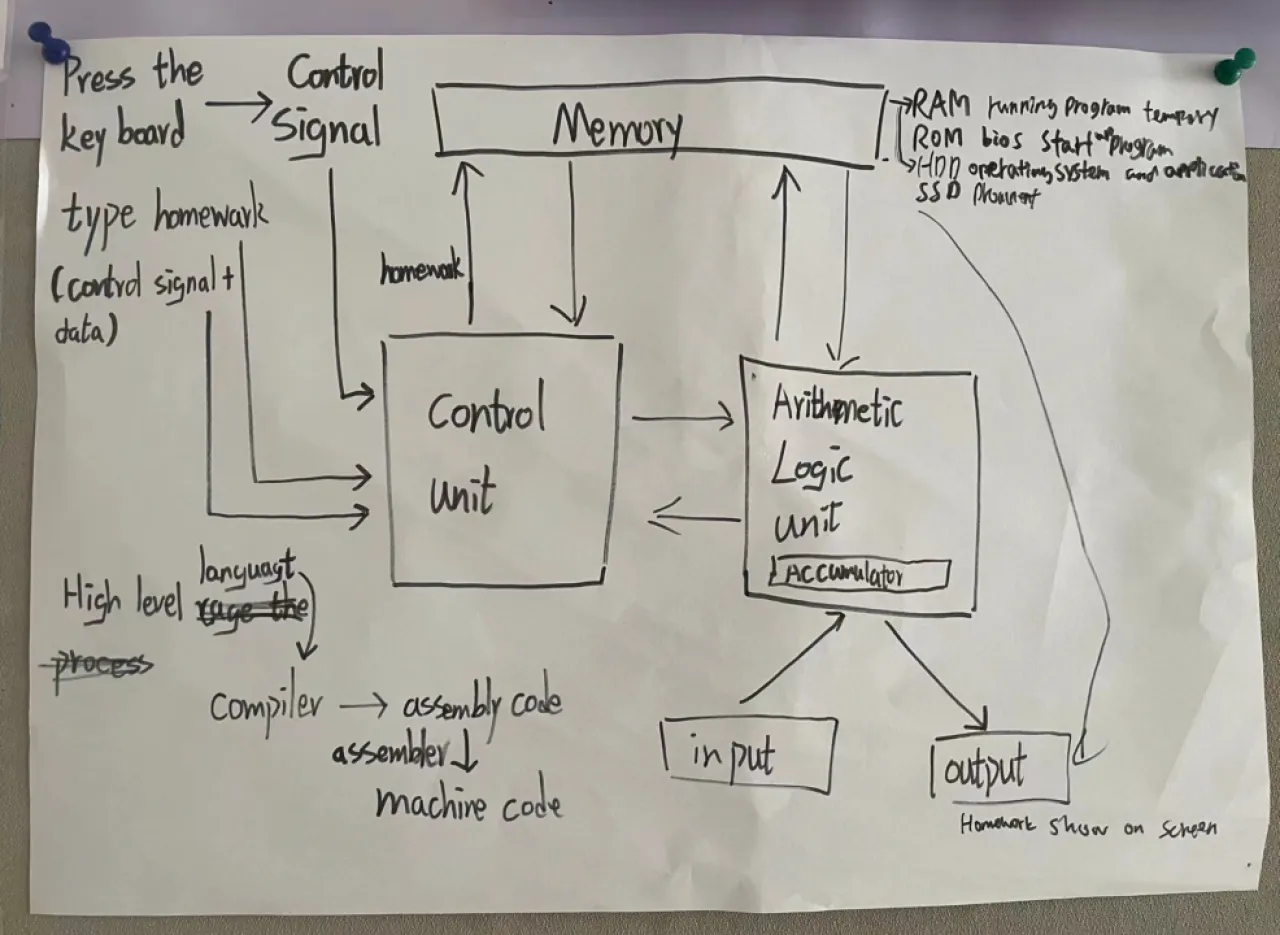 Press the
key board
Control
Signal
type homewark
(control signal +
data)
Memory
RAM running program tempory
ROM bios Start up program
HDD operating system and application
SSD
homework
Control
unit
Arithmetic
Logic
unit
Accumulator
High level languagt
rage the
process
compiler → assembly code
assembler
machine code
input
output
Homework show on screen